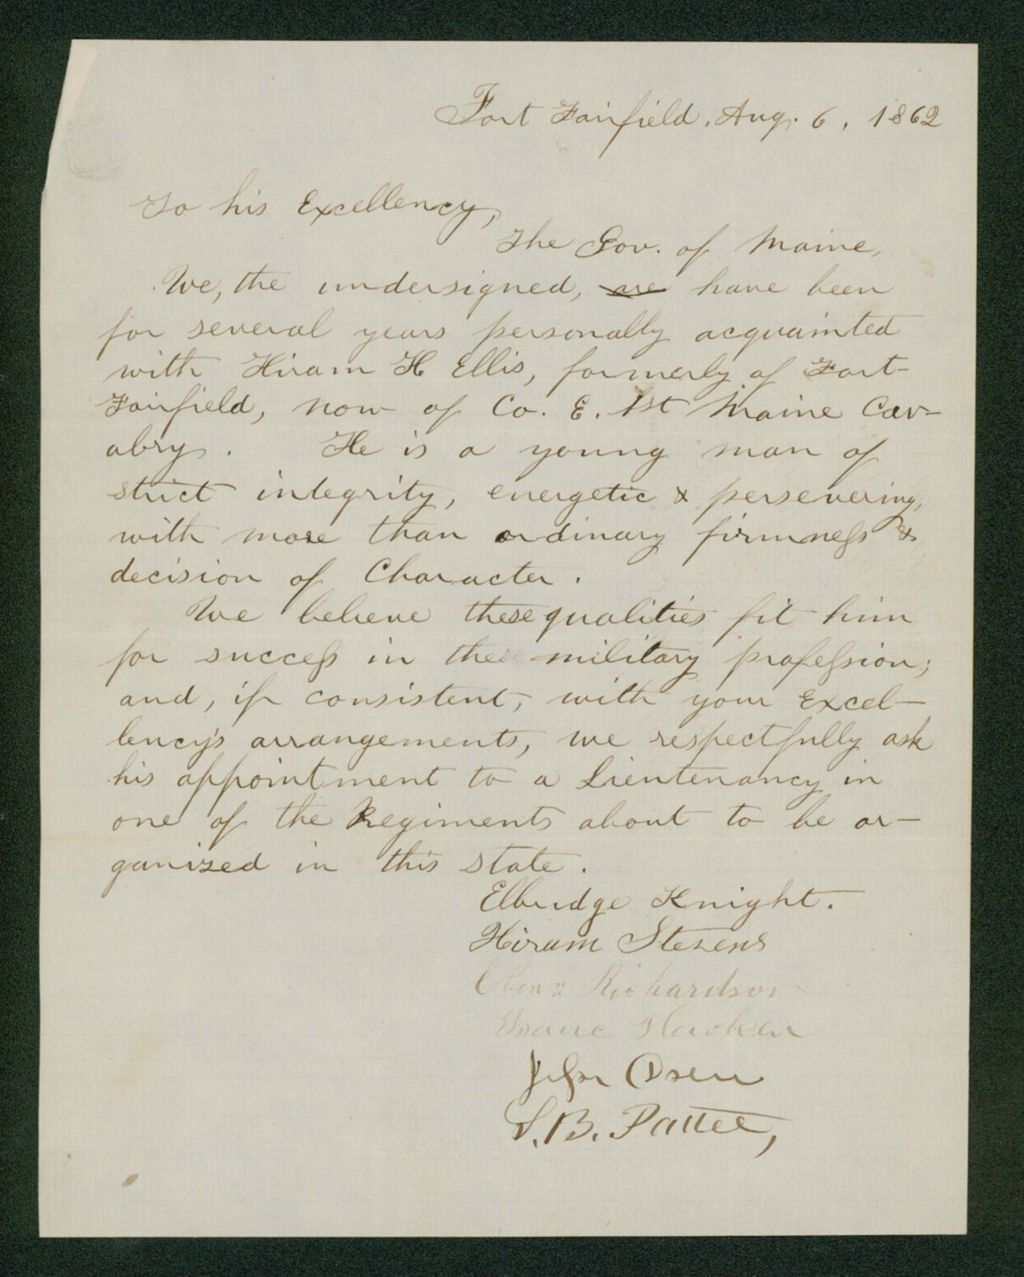 Fort Fairfield, Aug. 6, 1862
To his Excellency,
The Gov. of Maine,
We, the undersigned, are have been
for several years personally acquainted
with Hiram H Ellis, formerly of Fort
Fairfield, now of Co. E. 1st Maine Cav-
alry. He is a young man of
strict integrity, energetic & persevering,
with more than ordinary firmness &
decision of Character.
We believe these qualities fit him
for success in the military profession;
and, if consistent, with your Excel-
lency's arrangements, we respectfully ask
his appointment to a Lieutenancy in
one of the Regiments about to be or-
ganized in this state.
Elbridge Knight.
Hiram Stevens
Richardson
Isaac Hacker
John
S. B. Pattee,